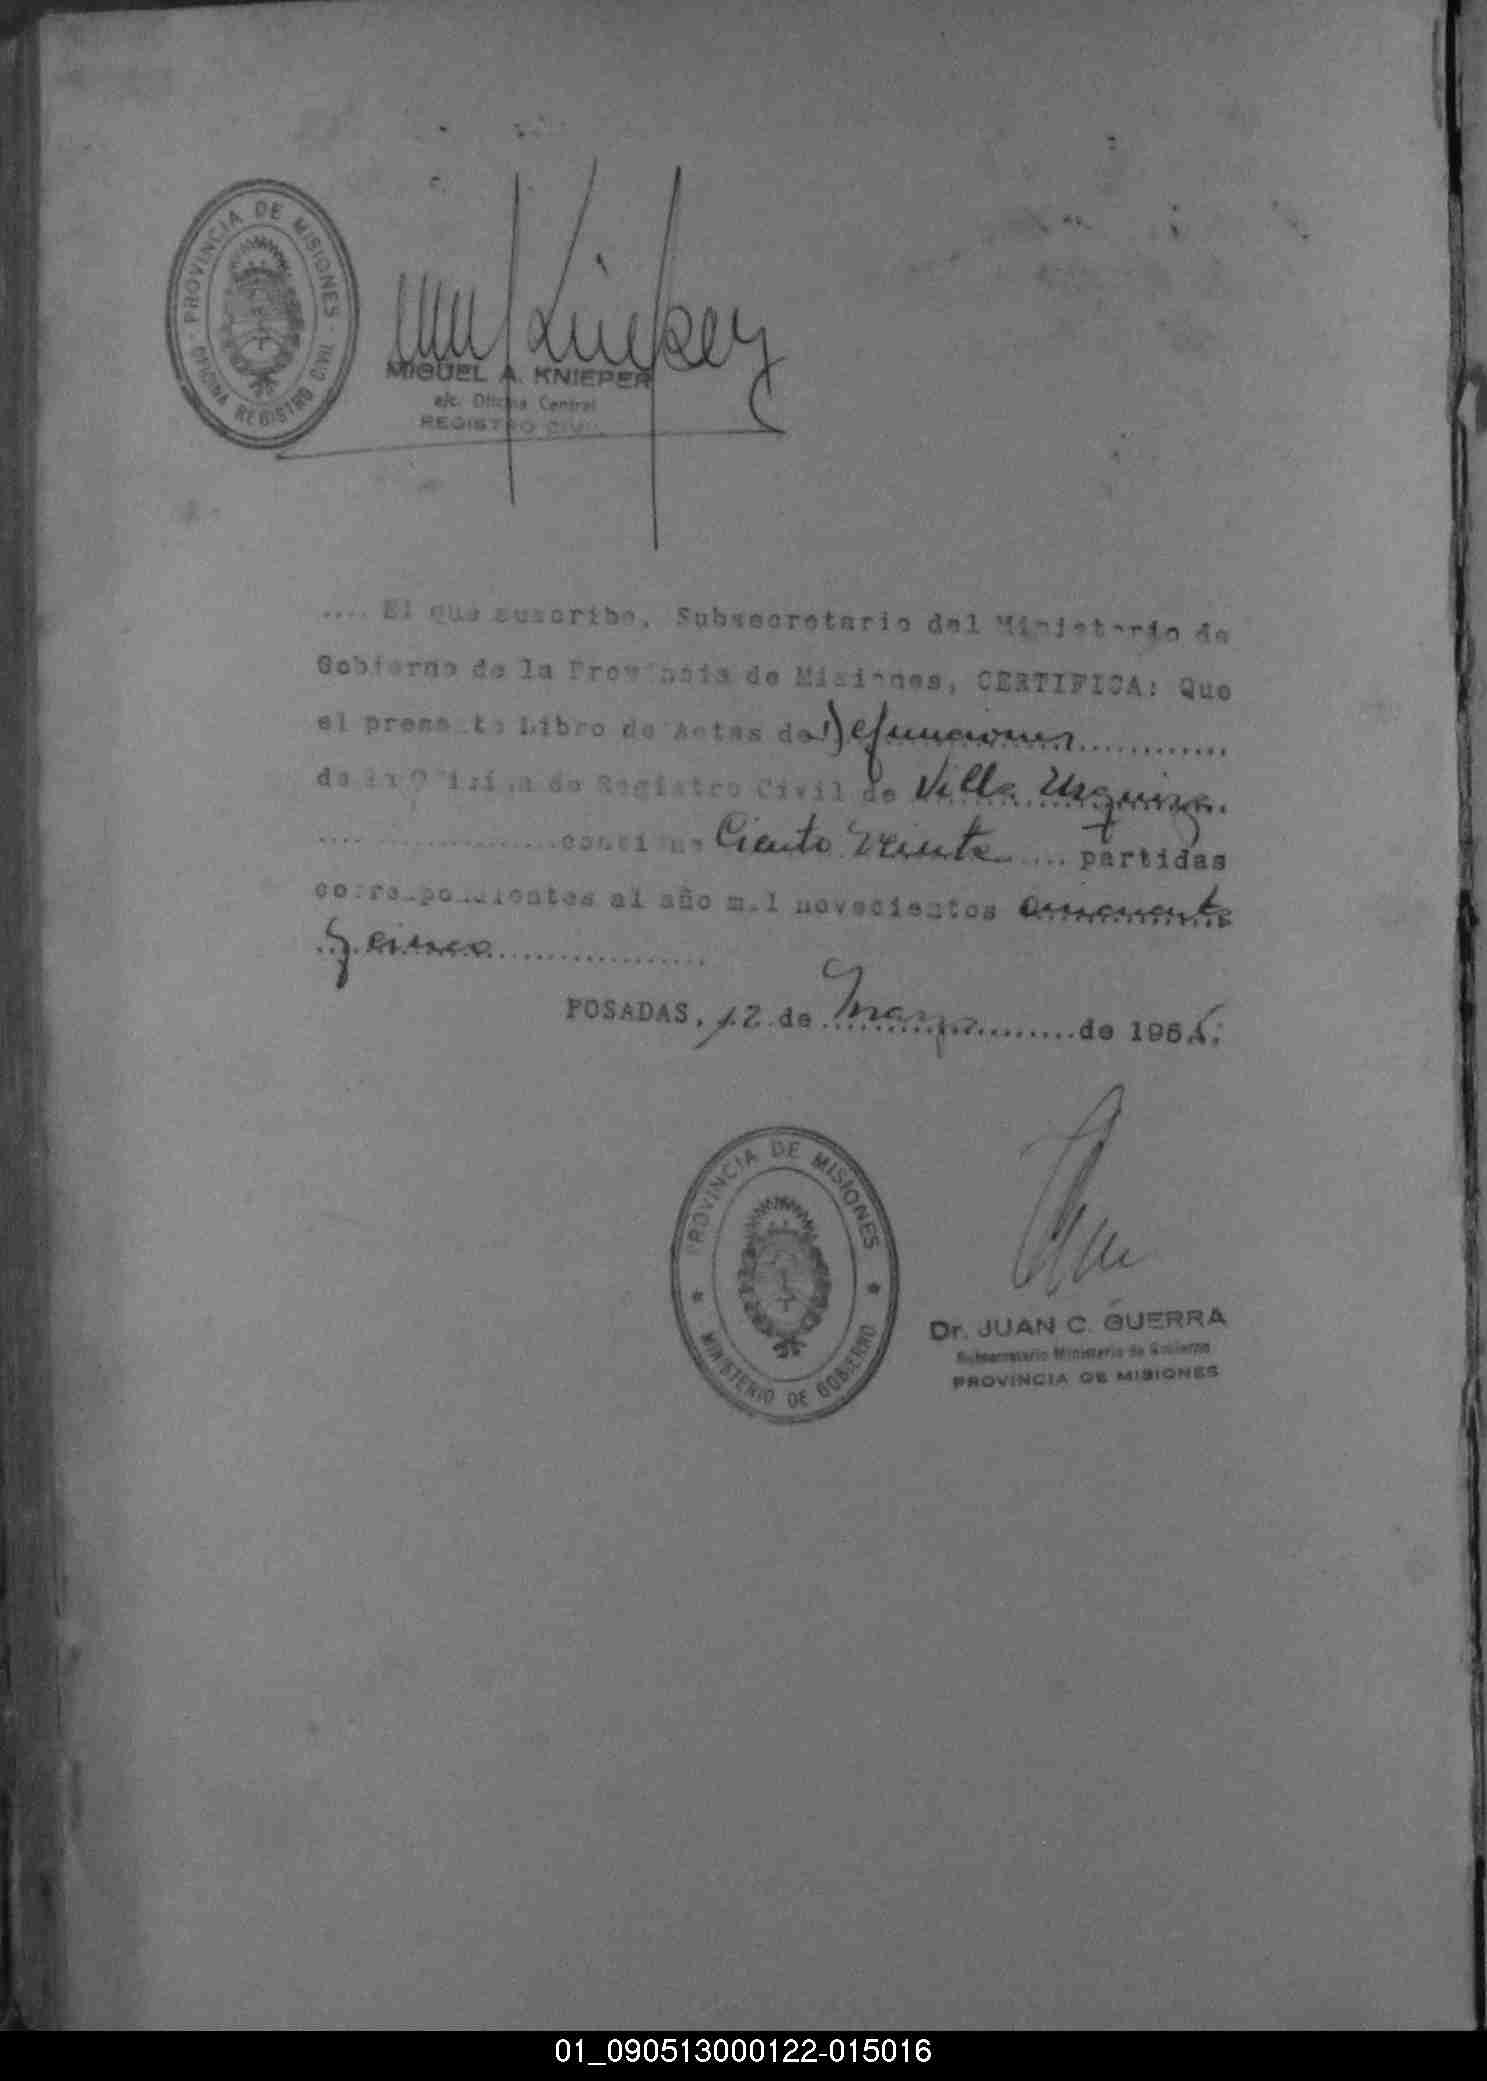 PROVINCIA DE MISIONES
OFICINA REGISTRO CIVIL
MIGUEL A. KNIEPER
a/c. Oficina Central
REGISTRO CIVIL
.... El que suscribe, Subsecretario del Ministerio de
Gobierno de la Provincia de Misiones, CERTIFICA: Que
el presente Libro de Actas de Defunciones
de la Oficina de Registro Civil de Villa Urquiza.
contiene Ciento Veinte .... partidas
correspondientes al año mil novecientos
y cinco
POSADAS, 12 de Marzo de 196
PROVINCIA DE MISIONES
MINISTERIO DE GOBIERNO
Dr. JUAN C. GUERRA
Subsecretario Ministerio de Gobierno
PROVINCIA DE MISIONES
01_090513000122-015016